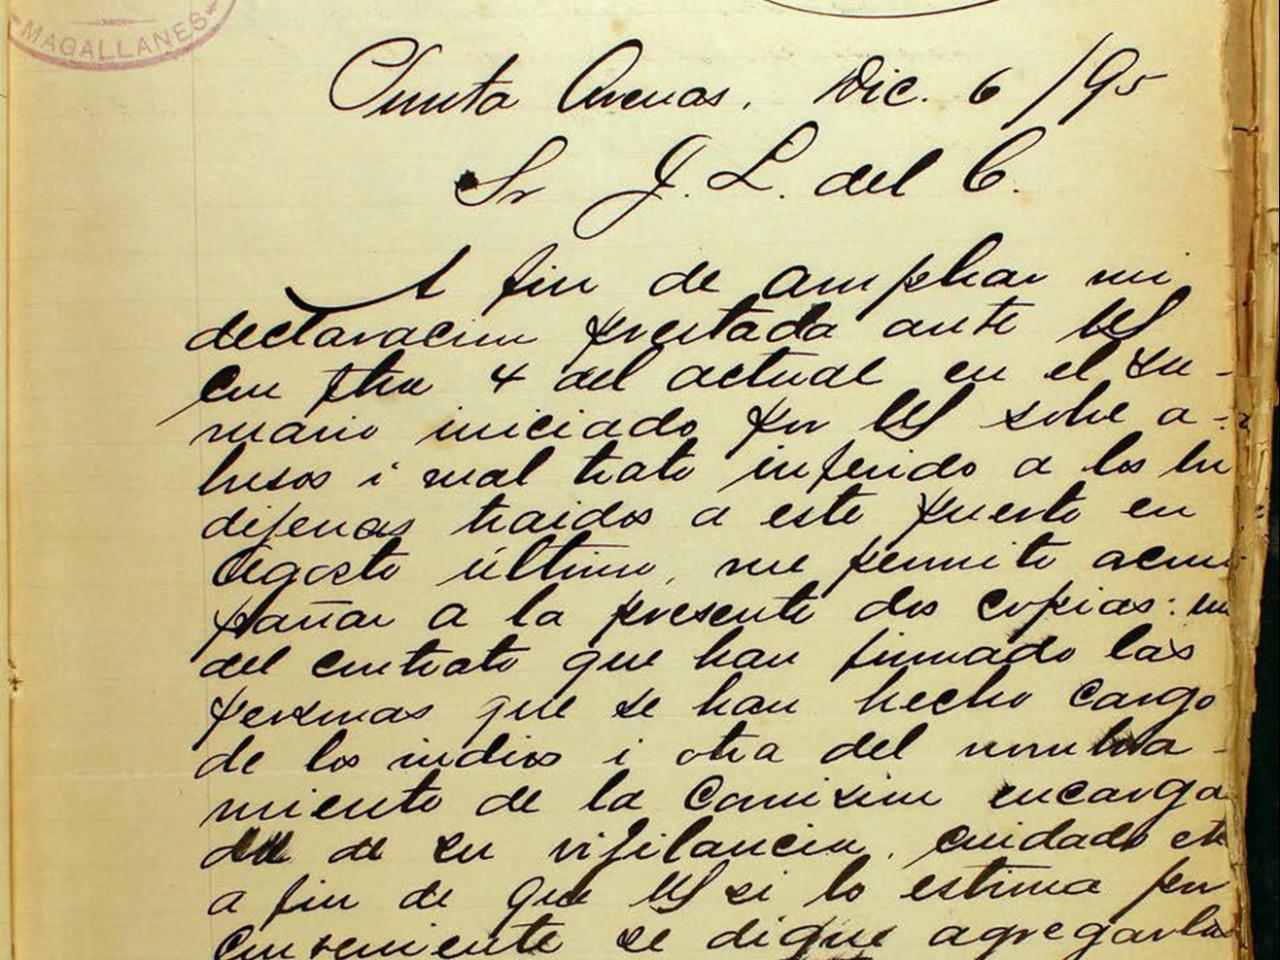 MAGALLANES
Punta Arenas. Dic. 6/95
Sr J. L. del C.
A fin de ampliar mi
declaracion prestada ante US
con fha 4 del actual en el su-
mario iniciado por US sobre a-
busos i mal trato inferido a los in
dijenas traidos a este puerto en
Agosto último, me permito acom
pañar a la presente dos copias: una
del contrato que han firmado las
personas que se han hecho cargo
de los indios i otra del nombra-
miento de la Comision encarga
da de su vijilancia, cuidado etc
a fin de que US si lo estima por
conveniente se digne agregarlas